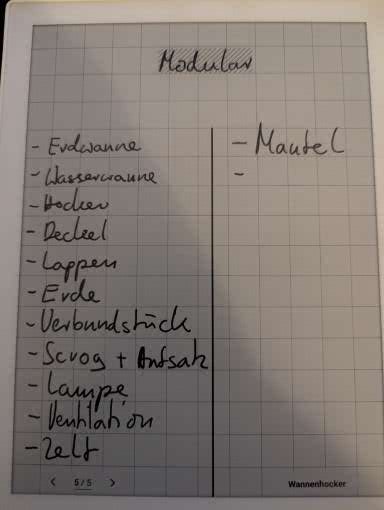 Modular
- Erdwanne
- Wasserwanne
- Hocker
- Deckel
- Lappen
- Erde
- Verbundstück
- Scrog + Aufsatz
- Lampe
- Ventilation
- Zelt
- Mantel
-
< 5/5 >
Wannenhocker